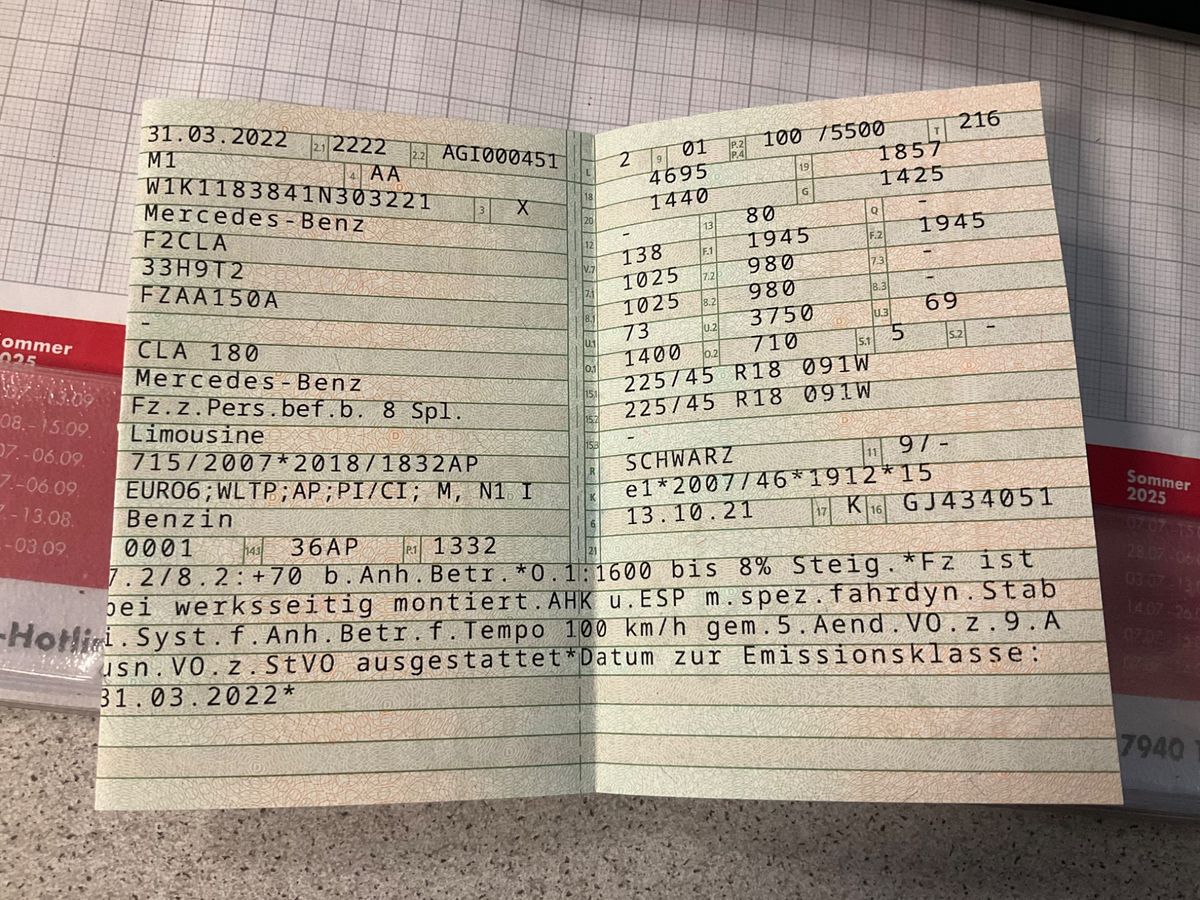 31.03.2022 2.1 2222 2.2 AGI000451
M1 4 AA
W1K1183841N303221 3 X
Mercedes-Benz
F2CLA
33H9T2
FZAA150A
-
CLA 180
Mercedes-Benz
Fz.z.Pers.bef.b. 8 Spl.
Limousine
715/2007*2018/1832AP
EURO6;WLTP;AP;PI/CI; M, N1 I
Benzin
0001 14.1 36AP P.1 1332
L 2 9 01 P.2 P.4 100 /5500 T 216
18 4695 19 1857
20 1440 G 1425
12 - 13 80 Q -
V.7 138 F.1 1945 F.2 1945
7.1 1025 7.2 980 7.3 -
8.1 1025 8.2 980 8.3 -
U.1 73 U.2 3750 U.3 69
O.1 1400 O.2 710 S.1 5 S.2 -
15.1 225/45 R18 091W
15.2 225/45 R18 091W
15.3 -
R SCHWARZ 11 9/-
K e1*2007/46*1912*15
6 13.10.21 17 K 16 GJ434051
21
7.2/8.2:+70 b.Anh.Betr.*O.1:1600 bis 8% Steig.*Fz ist
bei werksseitig montiert.AHK u.ESP m.spez.fahrdyn.Stab
i.Syst.f.Anh.Betr.f.Tempo 100 km/h gem.5.Aend.VO.z.9.A
usn.VO.z.StVO ausgestattet*Datum zur Emissionsklasse:
31.03.2022*
ommer
2025
07.-13.09
08.-15.09.
07.-06.09.
7.-06.09.
7.-13.08.
-03.09.
-Hotlin
Sommer
2025
7940